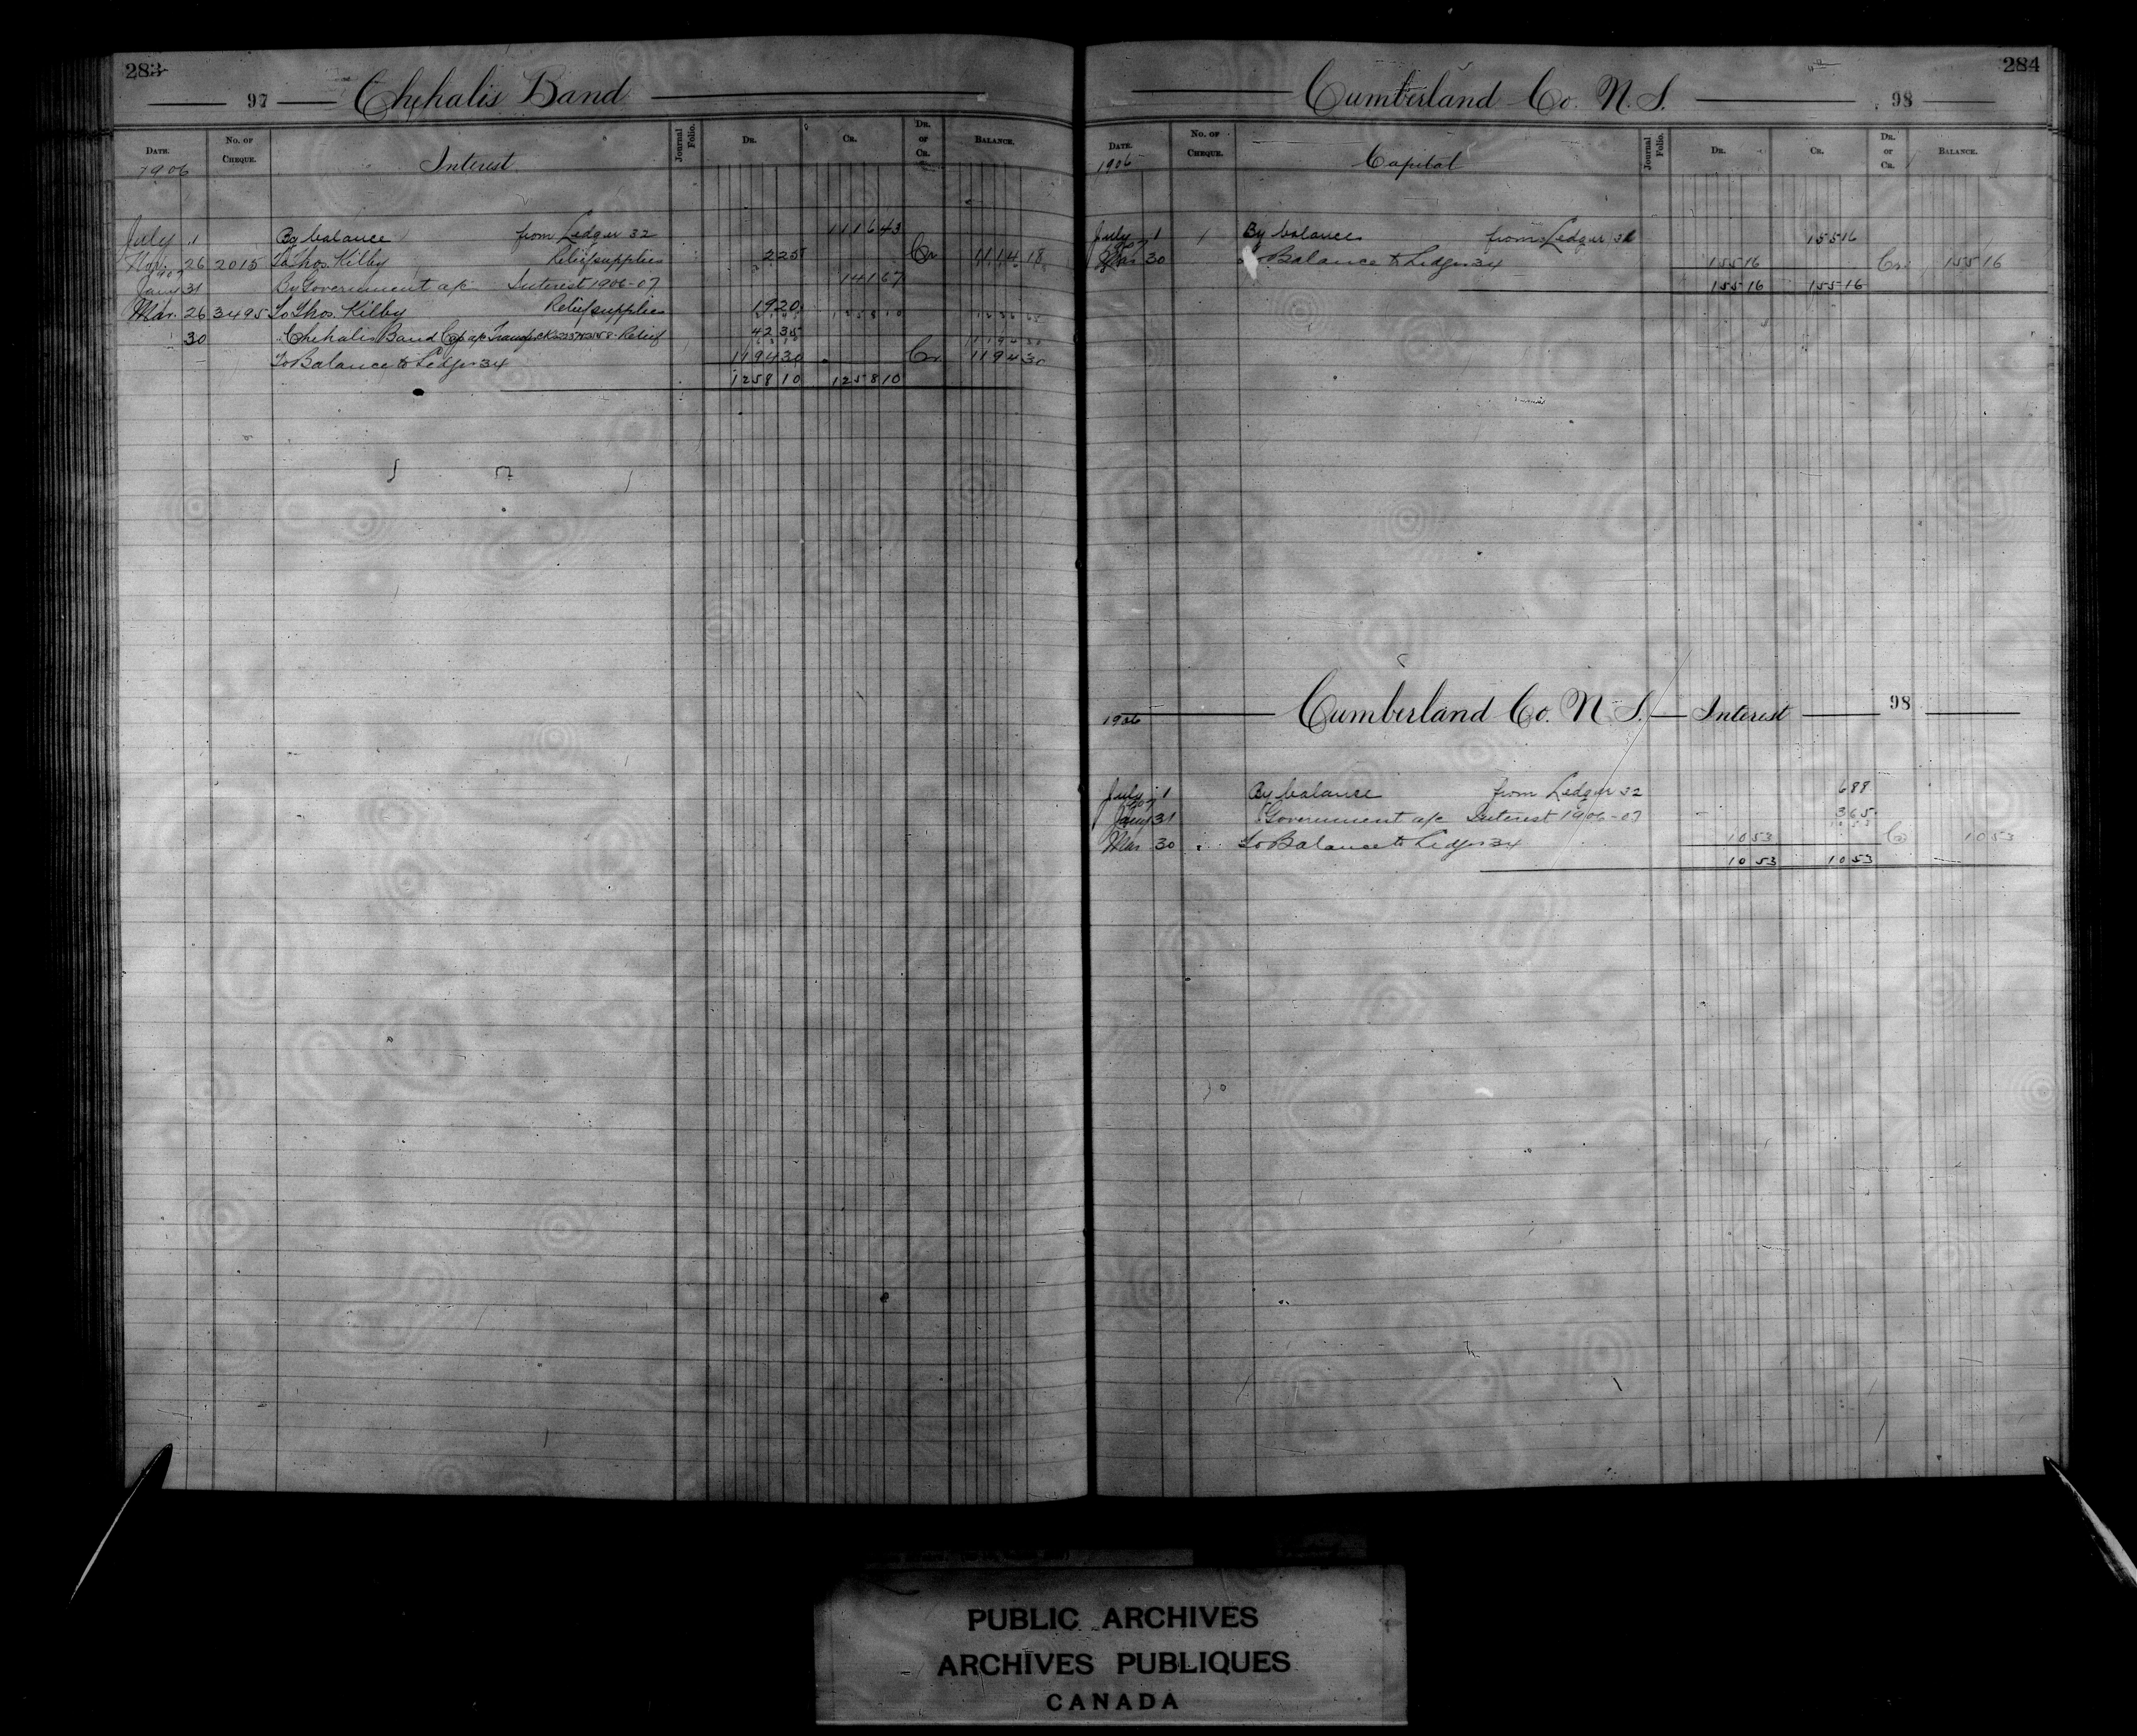 283
97 Chehalis Band
DATE. No. OF CHEQUE. Interest Journal Folio. DR. CR. DR. or CR. BALANCE.
1906
July 1 By balance from Ledger 32 1116 43
Nov. 26 2015 To Thos. Kilby Relief supplies 2 25 Cr 1114 18
1907
Jany 31 By Government a/c Interest 1906-07 141 67
Mar. 26 3495 To Thos. Kilby Relief supplies 19 20
30 Chehalis Band Cap a/c Relief 42 35
To Balance to Ledger 34 1194 30 Cr 1194 30
1258 10 1258 10
284
Cumberland Co. N.S. 98
DATE. No. OF CHEQUE. Capital Journal Folio. DR. CR. DR. or CR. BALANCE.
1906
July 1 By balance from Ledger 32 155 16
1907
Mar 30 To Balance to Ledger 34 155 16 Cr 155 16
155 16 155 16
1906 Cumberland Co. N.S. Interest 98
July 1 By balance from Ledger 32 6 88
1907
Jany 31 Government a/c Interest 1906-07 3 65
Mar 30 To Balance to Ledger 34 10 53 Cr 10 53
10 53 10 53
PUBLIC ARCHIVES
ARCHIVES PUBLIQUES
CANADA